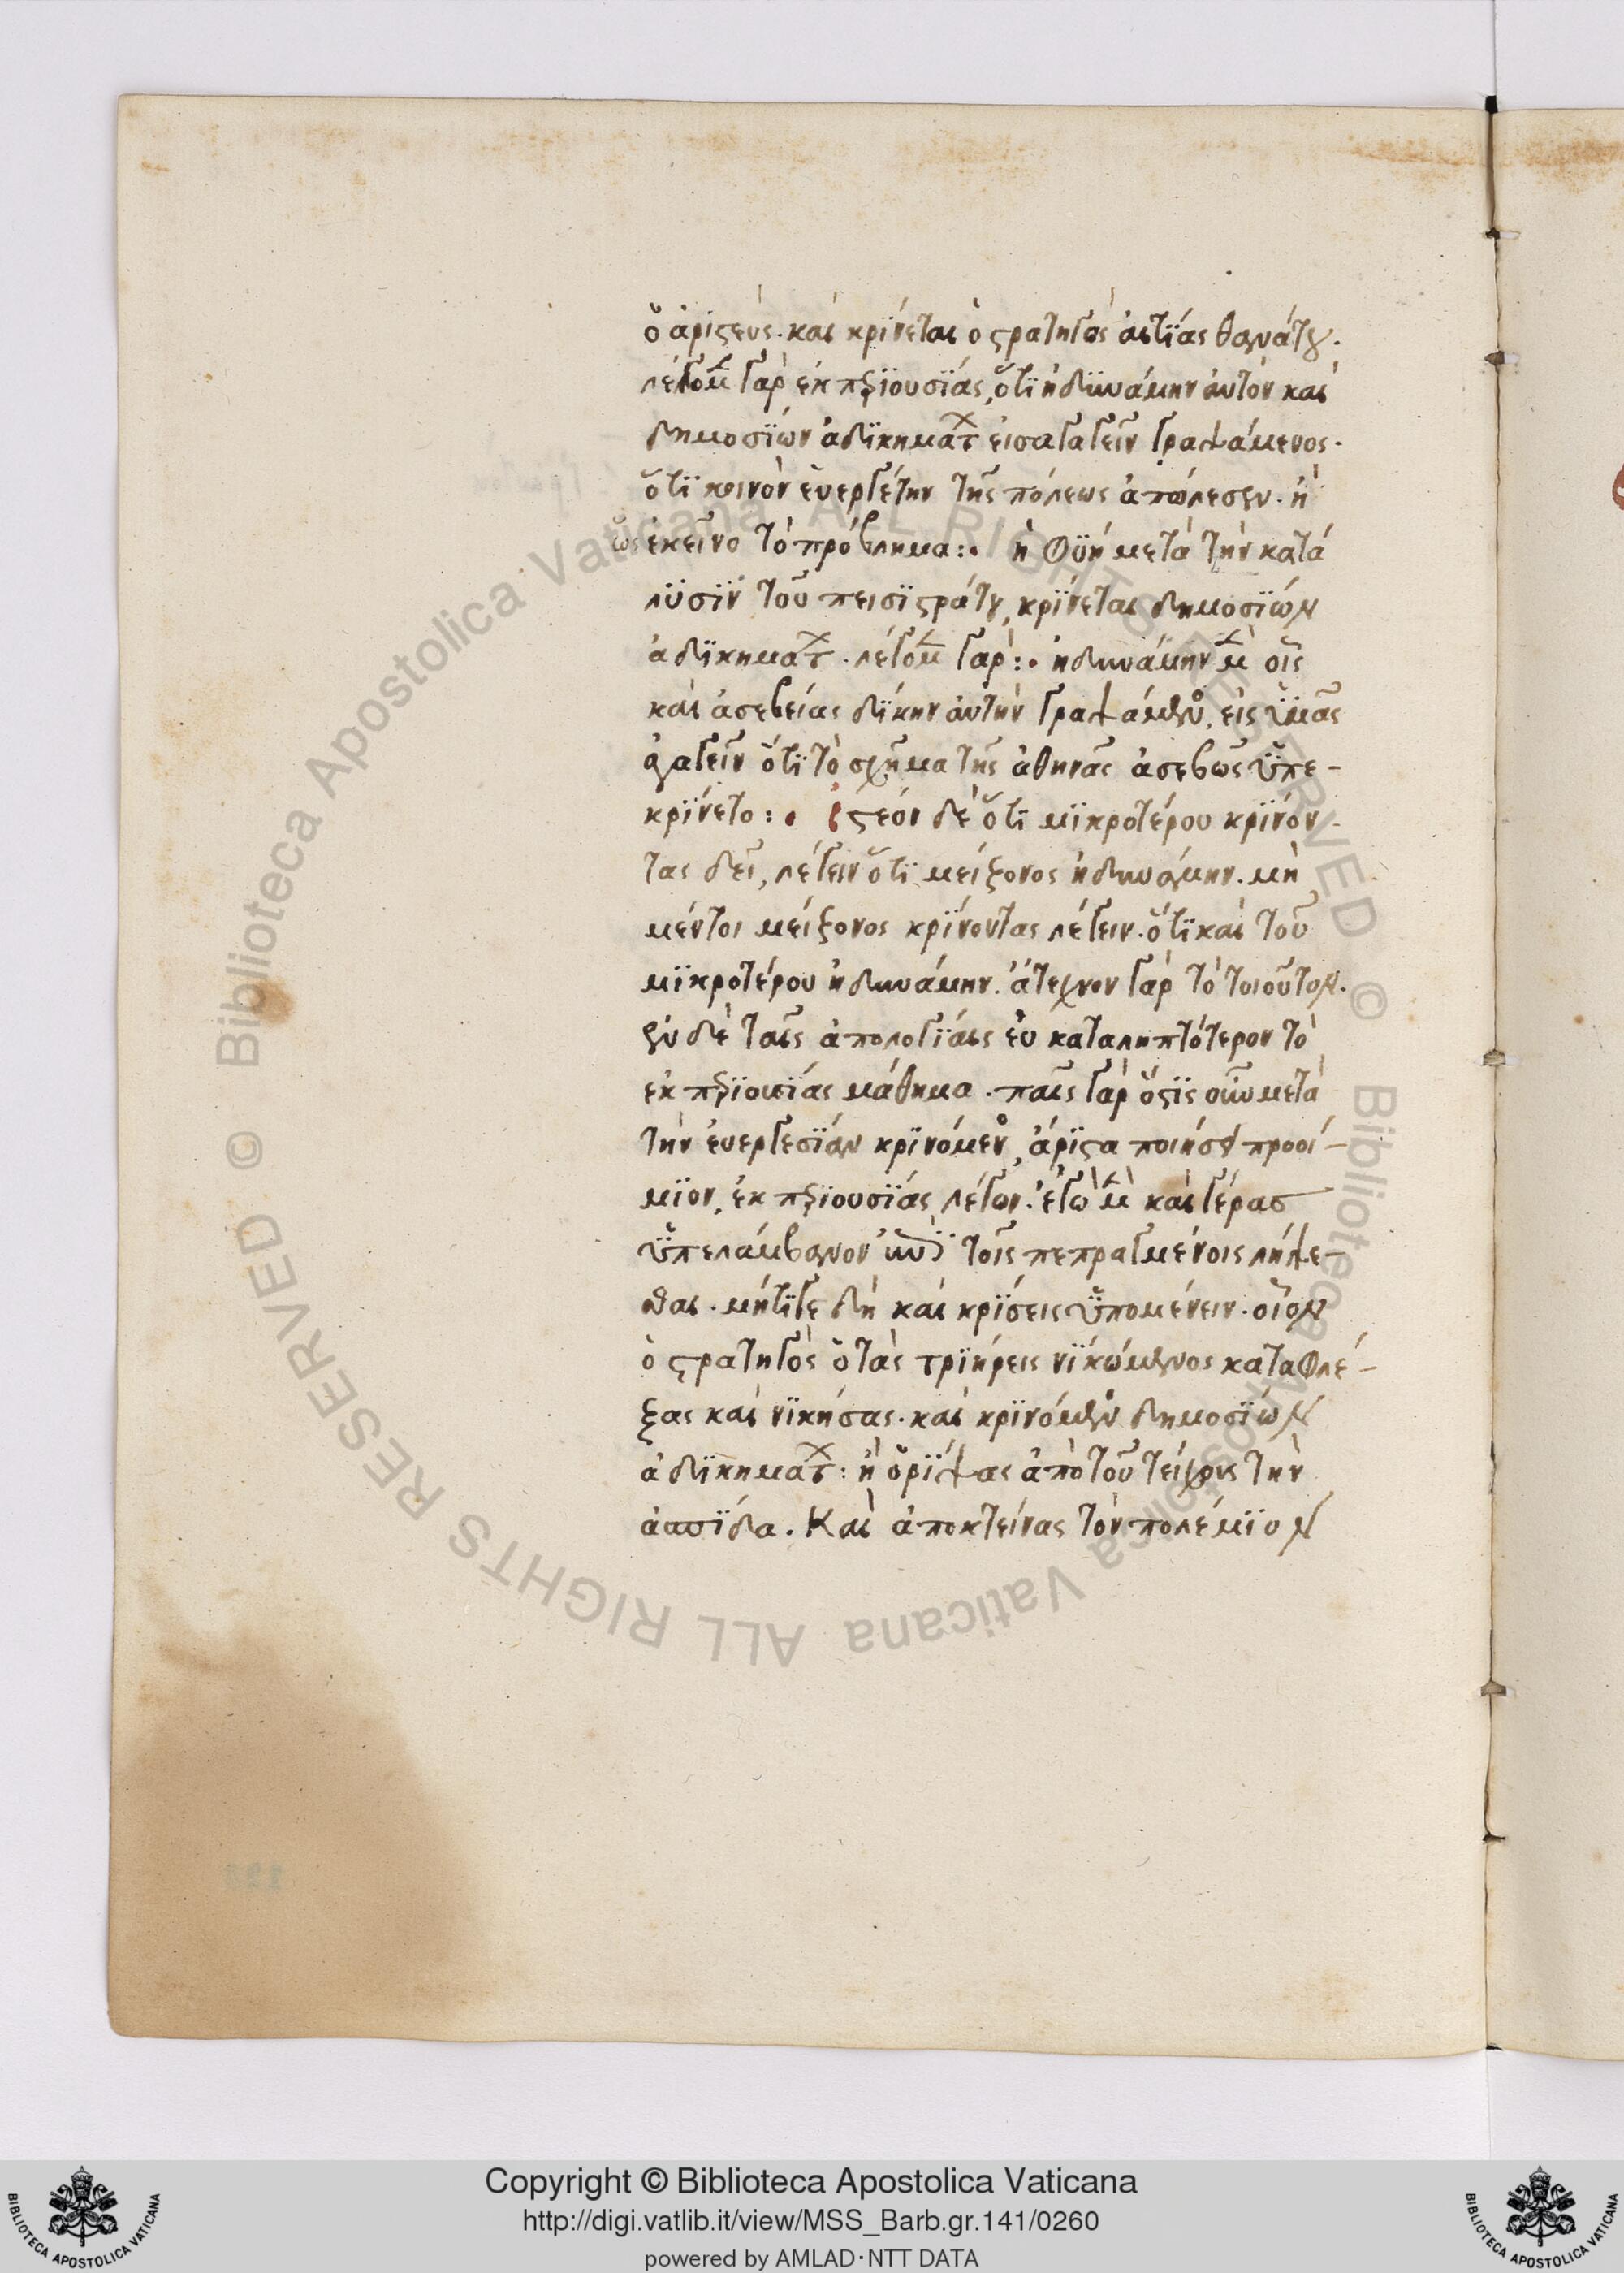 ὁ ἀριστεύς. καὶ κρίνεται ὁ στρατηγὸς αἰτίας θανάτου.
λέγομεν γὰρ ἐκ περϊουσίας, ὅτι ἠδυνάμην αὐτὸν καὶ
δημοσϊων ἀδϊκημάτων εἰσαγαγεῖν γραψάμενος.
ὅτϊ κοινὸν εὐεργέτην τῆς πόλεως ἀπώλεσεν. ἢ
ὡς ἐκεῖνο τὸ πρόβλημα:. ἡ Φϋὴ μετὰ τὴν κατά
λϋσϊν τοῦ πεισϊστράτου, κρίνεται δημοσϊων
ἀδϊκημάτων. λέγομεν γὰρ:. ἠδυνάμην μὲν οἷς
καὶ ἀσεβείας δίκην αὐτὴν γραψάμενος, εἰς ὑμᾶς
ἀγαγεῖν ὅτϊ τὸ σχῆμα τῆς ἀθηνᾶς ἀσεβῶς ὑπε-
κρίνετο:. ἰστέον δὲ ὅτϊ μϊκροτέρου κρϊνόν-
τας δεῖ, λέγειν ὅτϊ μείζονος ἠδυνάμην. μὴ
μέντοι μείζονος κρίνοντας λέγειν. ὅτϊ καὶ τοῦ
μϊκροτέρου ἠδυνάμην. ἄτεχνον γὰρ τὸ τοιοῦτον.
ἐν δὲ ταῖς ἀπολογίαις εὐκαταληπτότερον τὸ
ἐκ περϊουσίας μάθημα. πᾶς γὰρ ὅστϊς οὖν μετὰ
τὴν εὐεργεσίαν κρϊνόμενος, ἄρϊστα ποιήσει προοί-
μϊον, ἐκ περϊουσίας λέγων. ἐγὼ μὲν καὶ γέρας
ὑπελάμβανον ἐπὶ τοῖς πεπραγμένοις λήψε-
σθαι. μήτϊγε δὴ καὶ κρίσεις ὑπομένειν. οἷον
ὁ στρατηγὸς ὁ τὰς τρϊήρεις νϊκώμενος καταΦλέ-
ξας καὶ νϊκήσας. καὶ κρϊνόμενος δημοσϊων
ἀδϊκημάτων: ἢ ὁ ῥίψας ἀπὸ τοῦ τείχους τὴν
ἀσπίδα. Καὶ ἀποκτείνας τὸν πολέμϊον
Copyright © Biblioteca Apostolica Vaticana
http://digi.vatlib.it/view/MSS_Barb.gr.141/0260
powered by AMLAD·NTT DATA